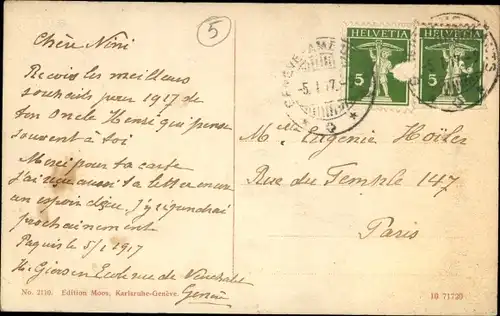 5
Chère Nini
Reçois les meilleurs
souhaits pour 1917 de
ton Oncle Henri qui pense
souvent à toi
Merci pour ta carte
J'ai reçu aussi ta lettre
un espoir j'y répondrai
prochainement
Paquis le 5/1 1917
H. Ecole rue de
Genève
No. 2130. Edition Moos, Karlsruhe-Genève.
HELVETIA
5
HELVETIA
5
GENÈVE
5. I. 17.
M Eugénie Hoïler
Rue du Temple 147
Paris
10 71720